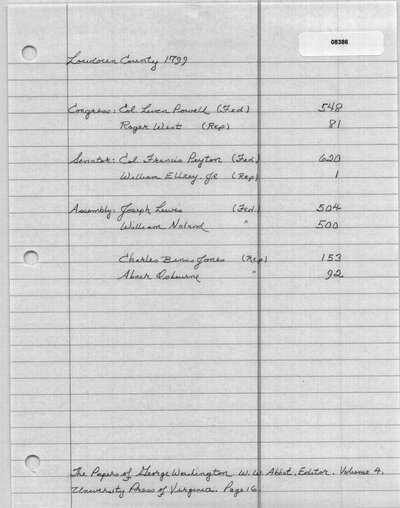 08386
Loudoun County 1799
Congress: Col. Leven Powell (Fed) 548
Roger West (Rep) 81
Senator: Col Francis Peyton (Fed) 620
William Ellzey, Jr (Rep) 1
Assembly: Joseph Lewis (Fed) 504
William Noland " 500
Charles Binns Jones (Rep) 153
Abner Osbourne " 92
The Papers of George Washington. W.W. Abbot, Editor. Volume 4.
University Press of Virginia. Page 16.